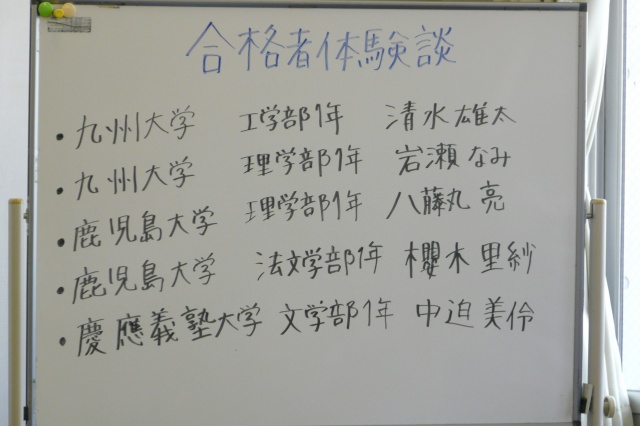 合格者体験談
・九州大学 工学部1年 清水雄太
・九州大学 理学部1年 岩瀬なみ
・鹿児島大学 理学部1年 八藤丸亮
・鹿児島大学 法文学部1年 櫻木里紗
・慶應義塾大学 文学部1年 中迫美伶